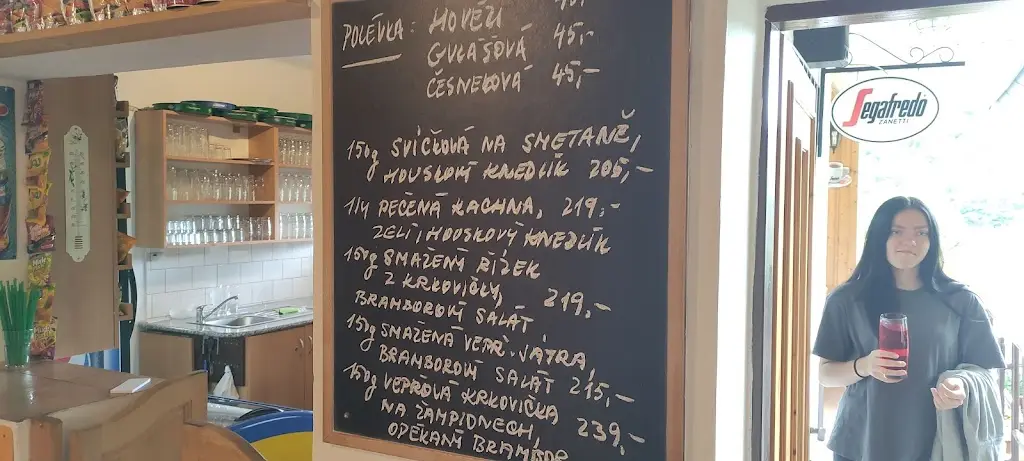 POLÉVKA: HOVĚZÍ
GULÁŠOVÁ 45,-
ČESNEKOVÁ 45,-
150g SVÍČKOVÁ NA SMETANĚ,
HOUSKOVÝ KNEDLÍK 205,-
1/4 PEČENÁ KACHNA, 219,-
ZELÍ, HOUSKOVÝ KNEDLÍK
150g SMAŽENÝ ŘÍZEK
Z KRKOVIČKY, 219,-
BRAMBOROVÝ SALÁT
150g SMAŽENÁ VEPŘ. JÁTRA,
BRAMBOROVÝ SALÁT 215,-
150g VEPŘOVÁ KRKOVIČKA
NA ŽAMPIONECH, 239,-
OPÉKANÝ BRAMBOR
Segafredo
ZANETTI